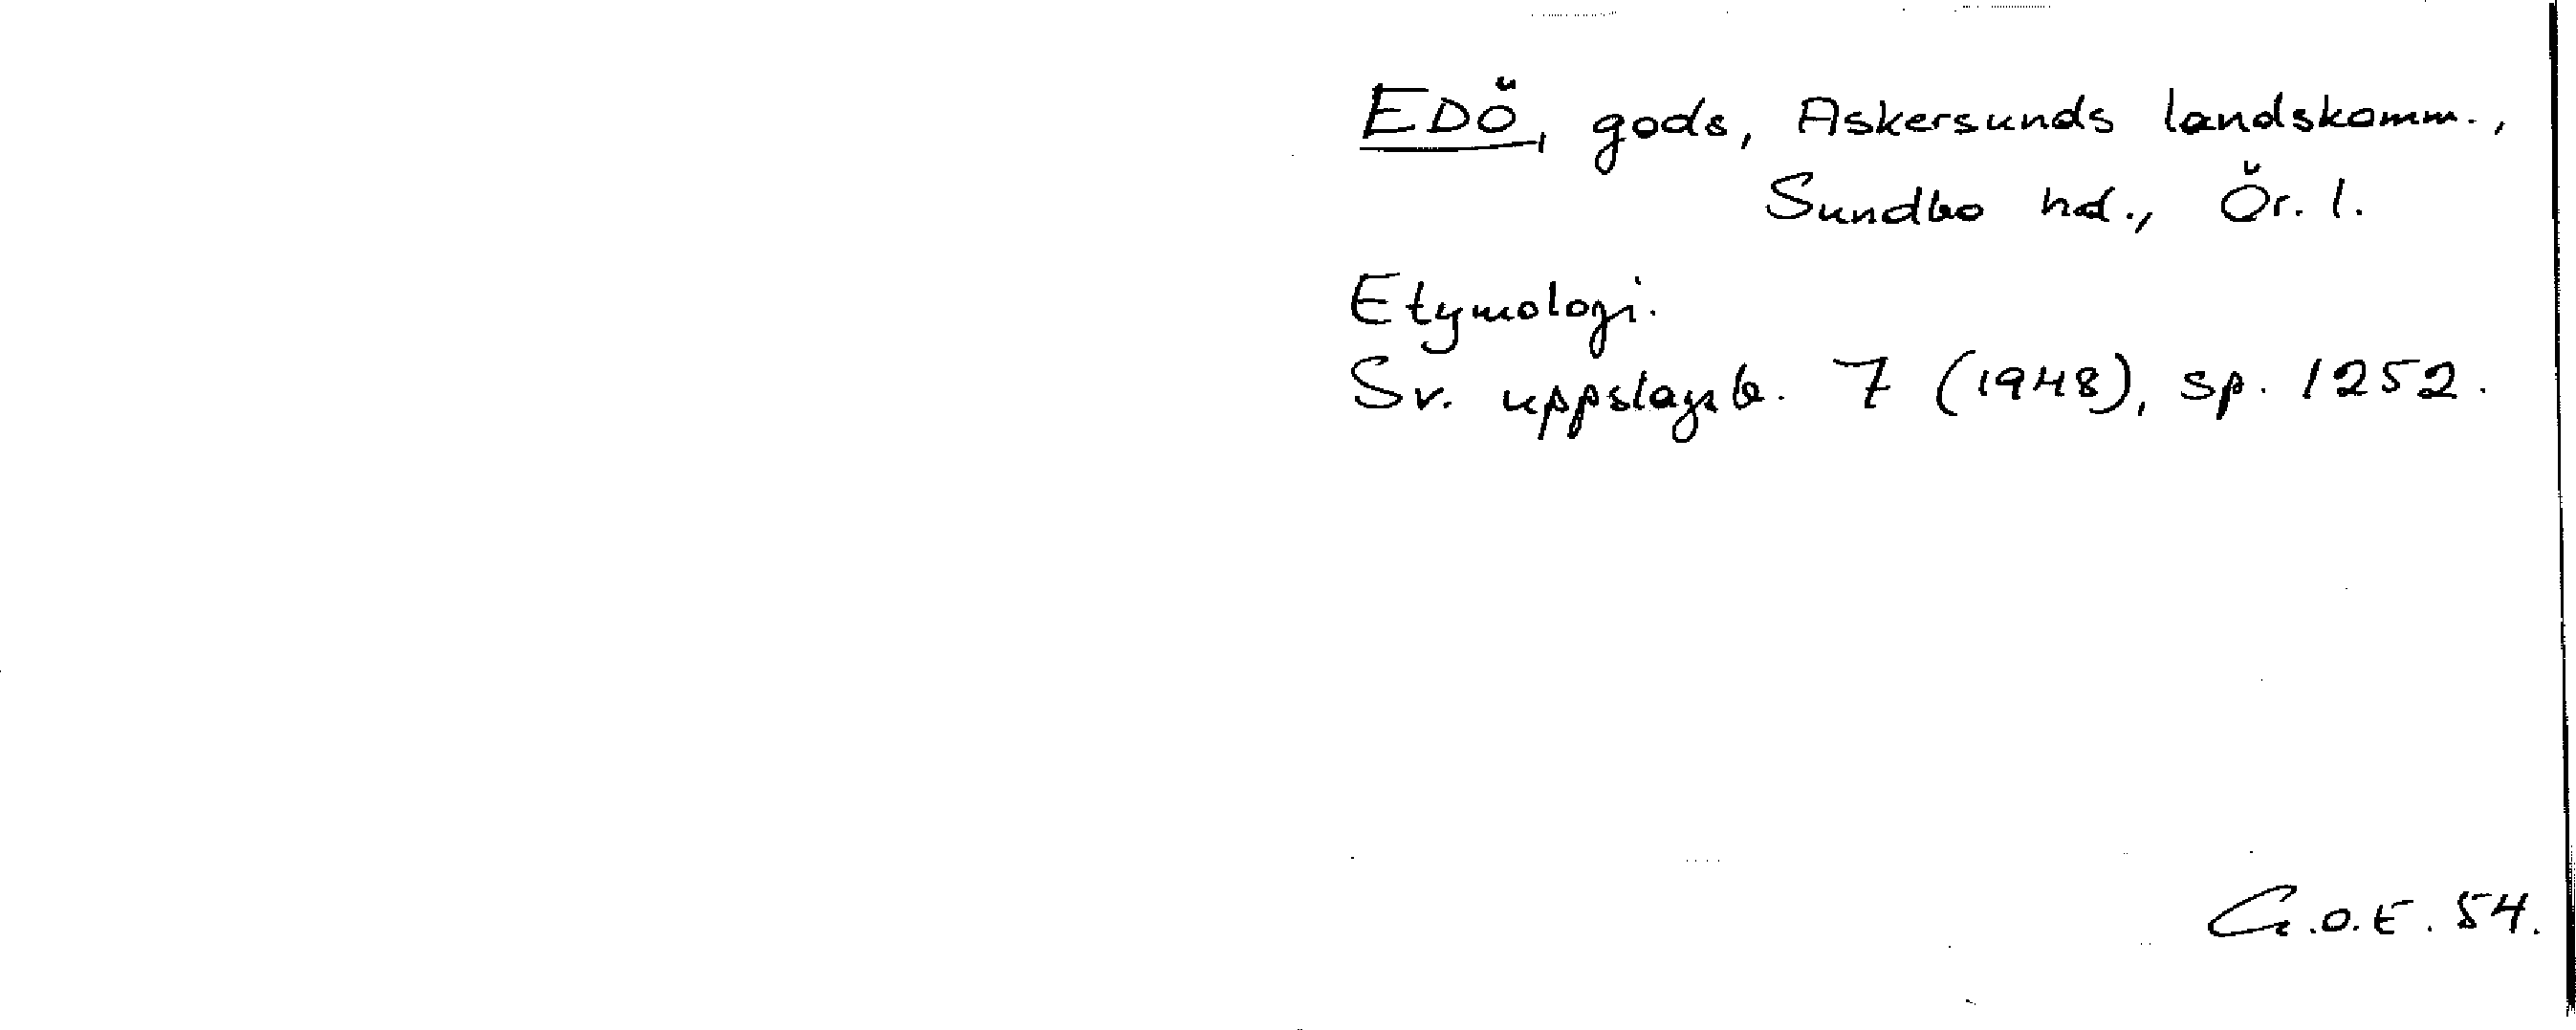 EDÖ, gods, Askersunds landskomm.,
Sundbo hd., Ör. l.
Etymologi.
Sv. uppslagsb. 7 (1948), sp. 1252.
G.O.E. 54.